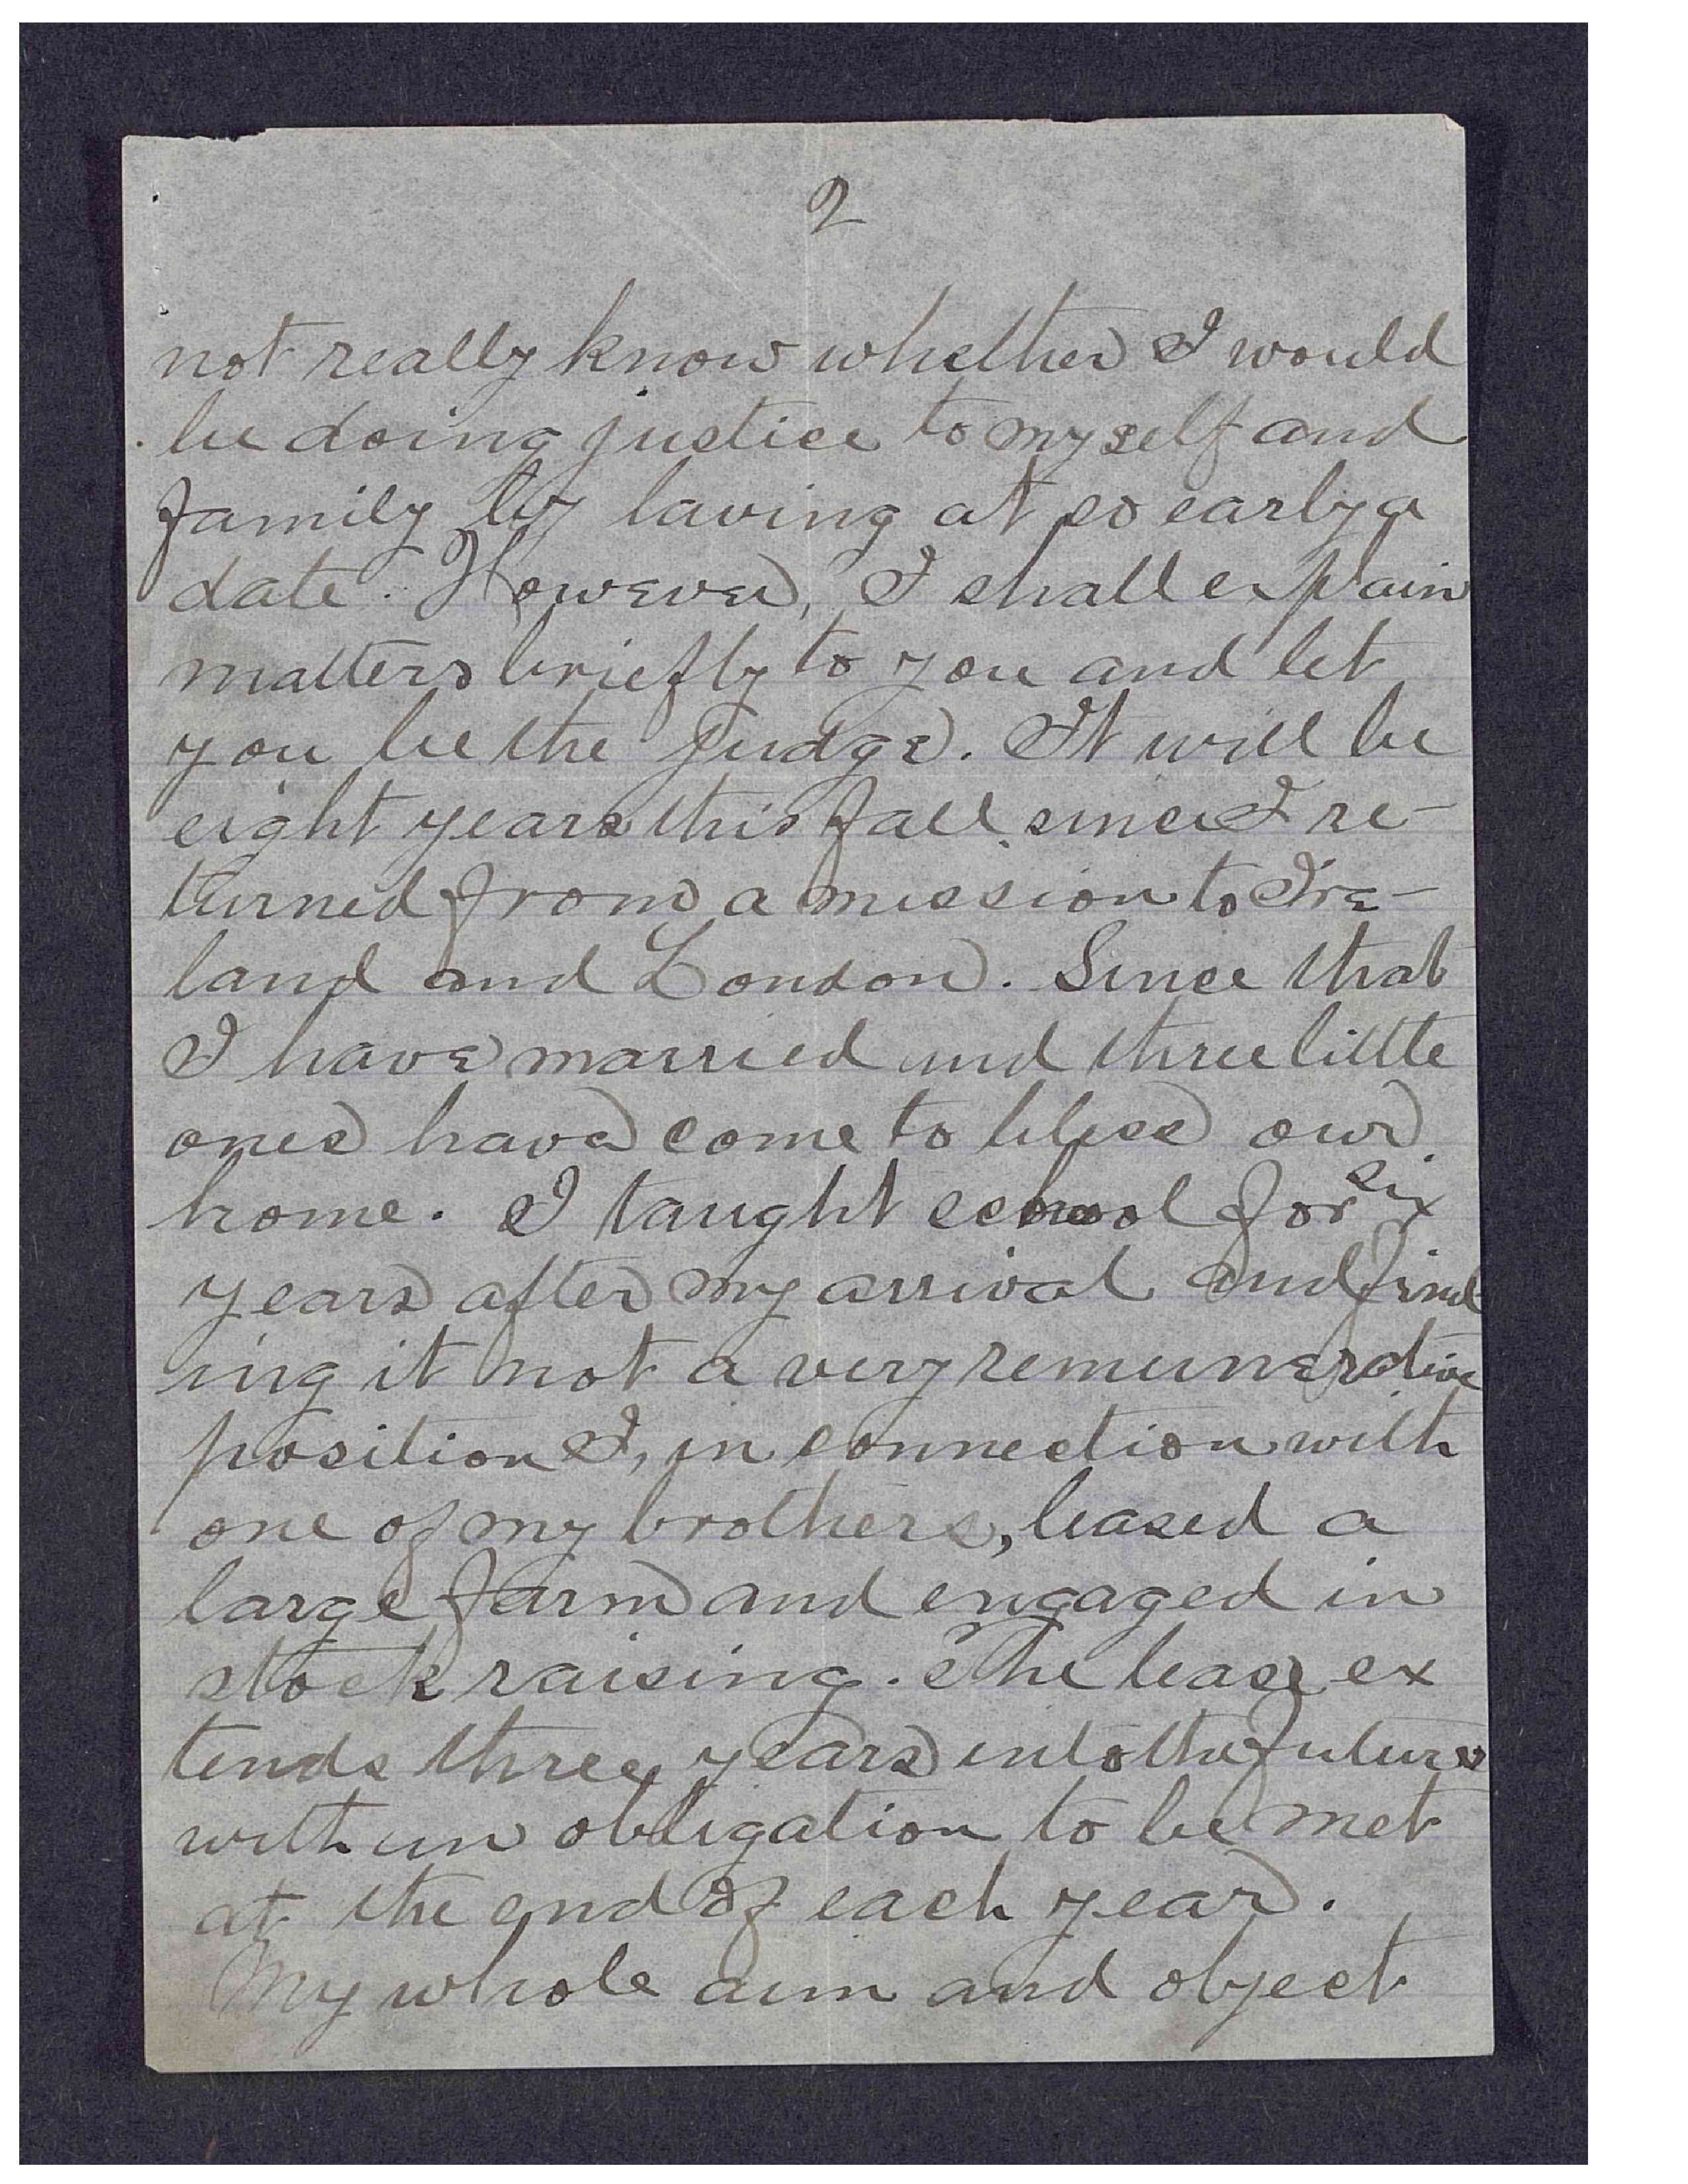 2
not really know whether I would
be doing justice to myself and
family by laving at so early a
date. However, I shall explain
matters briefly to you and let
you be the judge. It will be
eight years this fall since I re-
turned from a mission to Ire-
land and London. Since that
I have married and three little
ones have come to bless our
home. I taught school for six
years after my arrival and find
ing it not a very remunerative
position I, in connection with
one of my brothers, leased a
large farm and engaged in
stock raising. The lease ex
tends three years into the future
with un obligation to be met
at the end of each year.
My whole aim and object